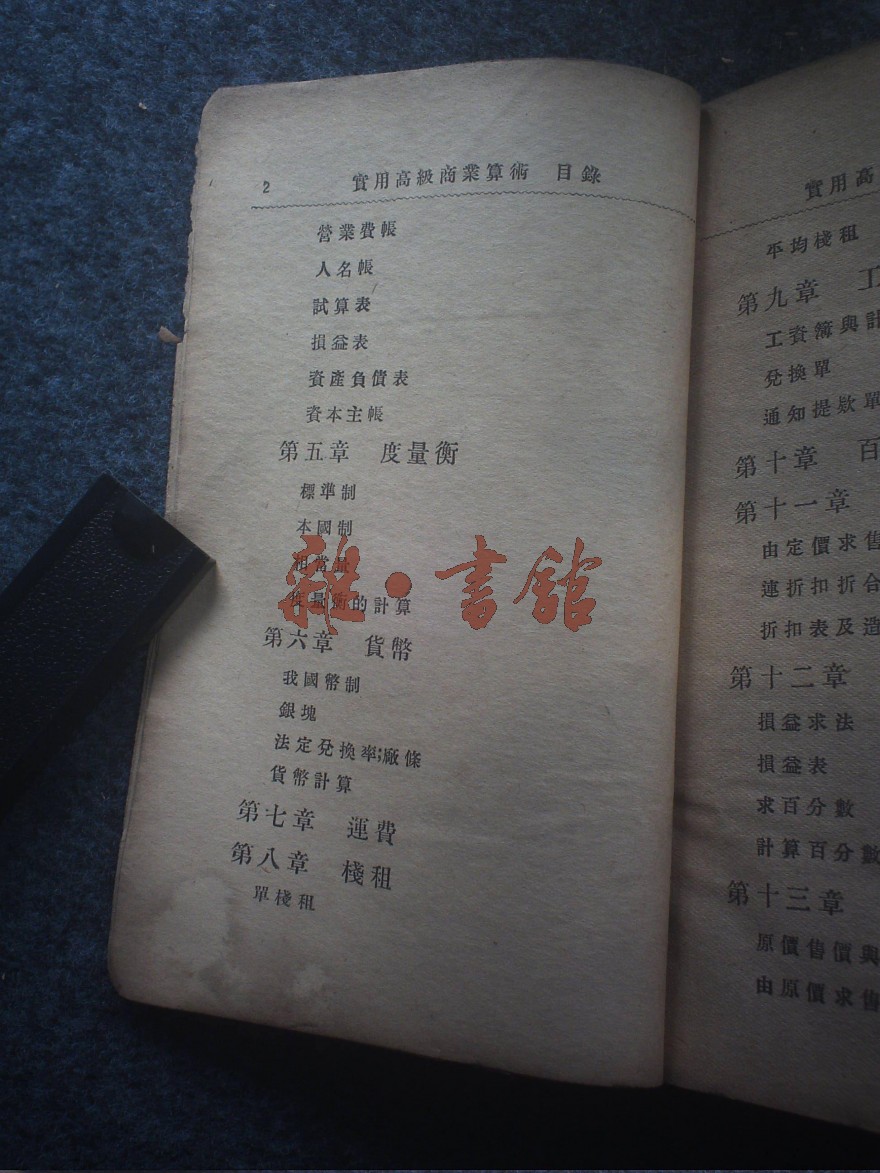 2 實用高級商業算術 目錄
營業費帳
人名帳
試算表
損益表
資產負債表
資本主帳
第五章 度量衡
標準制
本國制
相當量
度量衡的計算
第六章 貨幣
我國幣制
銀塊
法定兌換率;廠條
貨幣計算
第七章 運費
第八章 棧租
單棧租
雜·書館
實用高
平均棧租
第九章 工
工資簿與計
兌換單
通知提欵單
第十章 百
第十一章
由定價求售
連折扣折合
折扣表及造
第十二章
損益求法
損益表
求百分數
計算百分數
第十三章
原價售價與
由原價求售